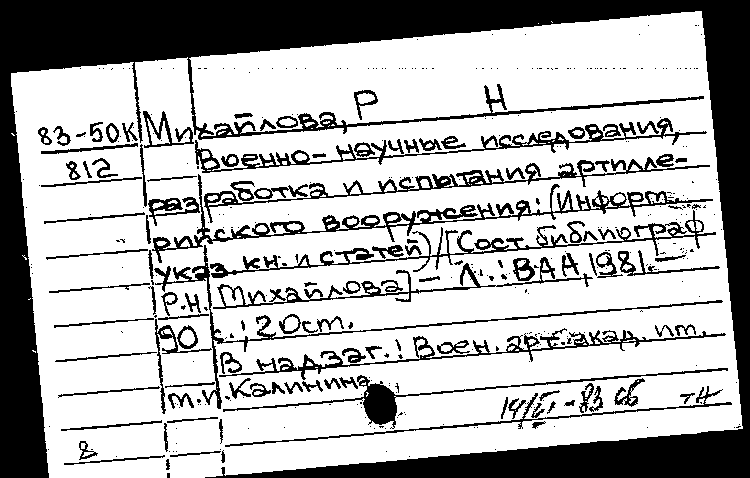 83-50К Михайлова, Р Н
812 Военно-научные исследования,
разработка и испытания артилле-
рийского вооружения: (Информ.
указ. кн. и статей) / [Сост. библиограф
Р.Н. Михайлова] - Л.: ВАА, 1981. -
90 с.; 20 см.
В надзаг.: Воен. арт. акад. им.
М.И. Калинина
8